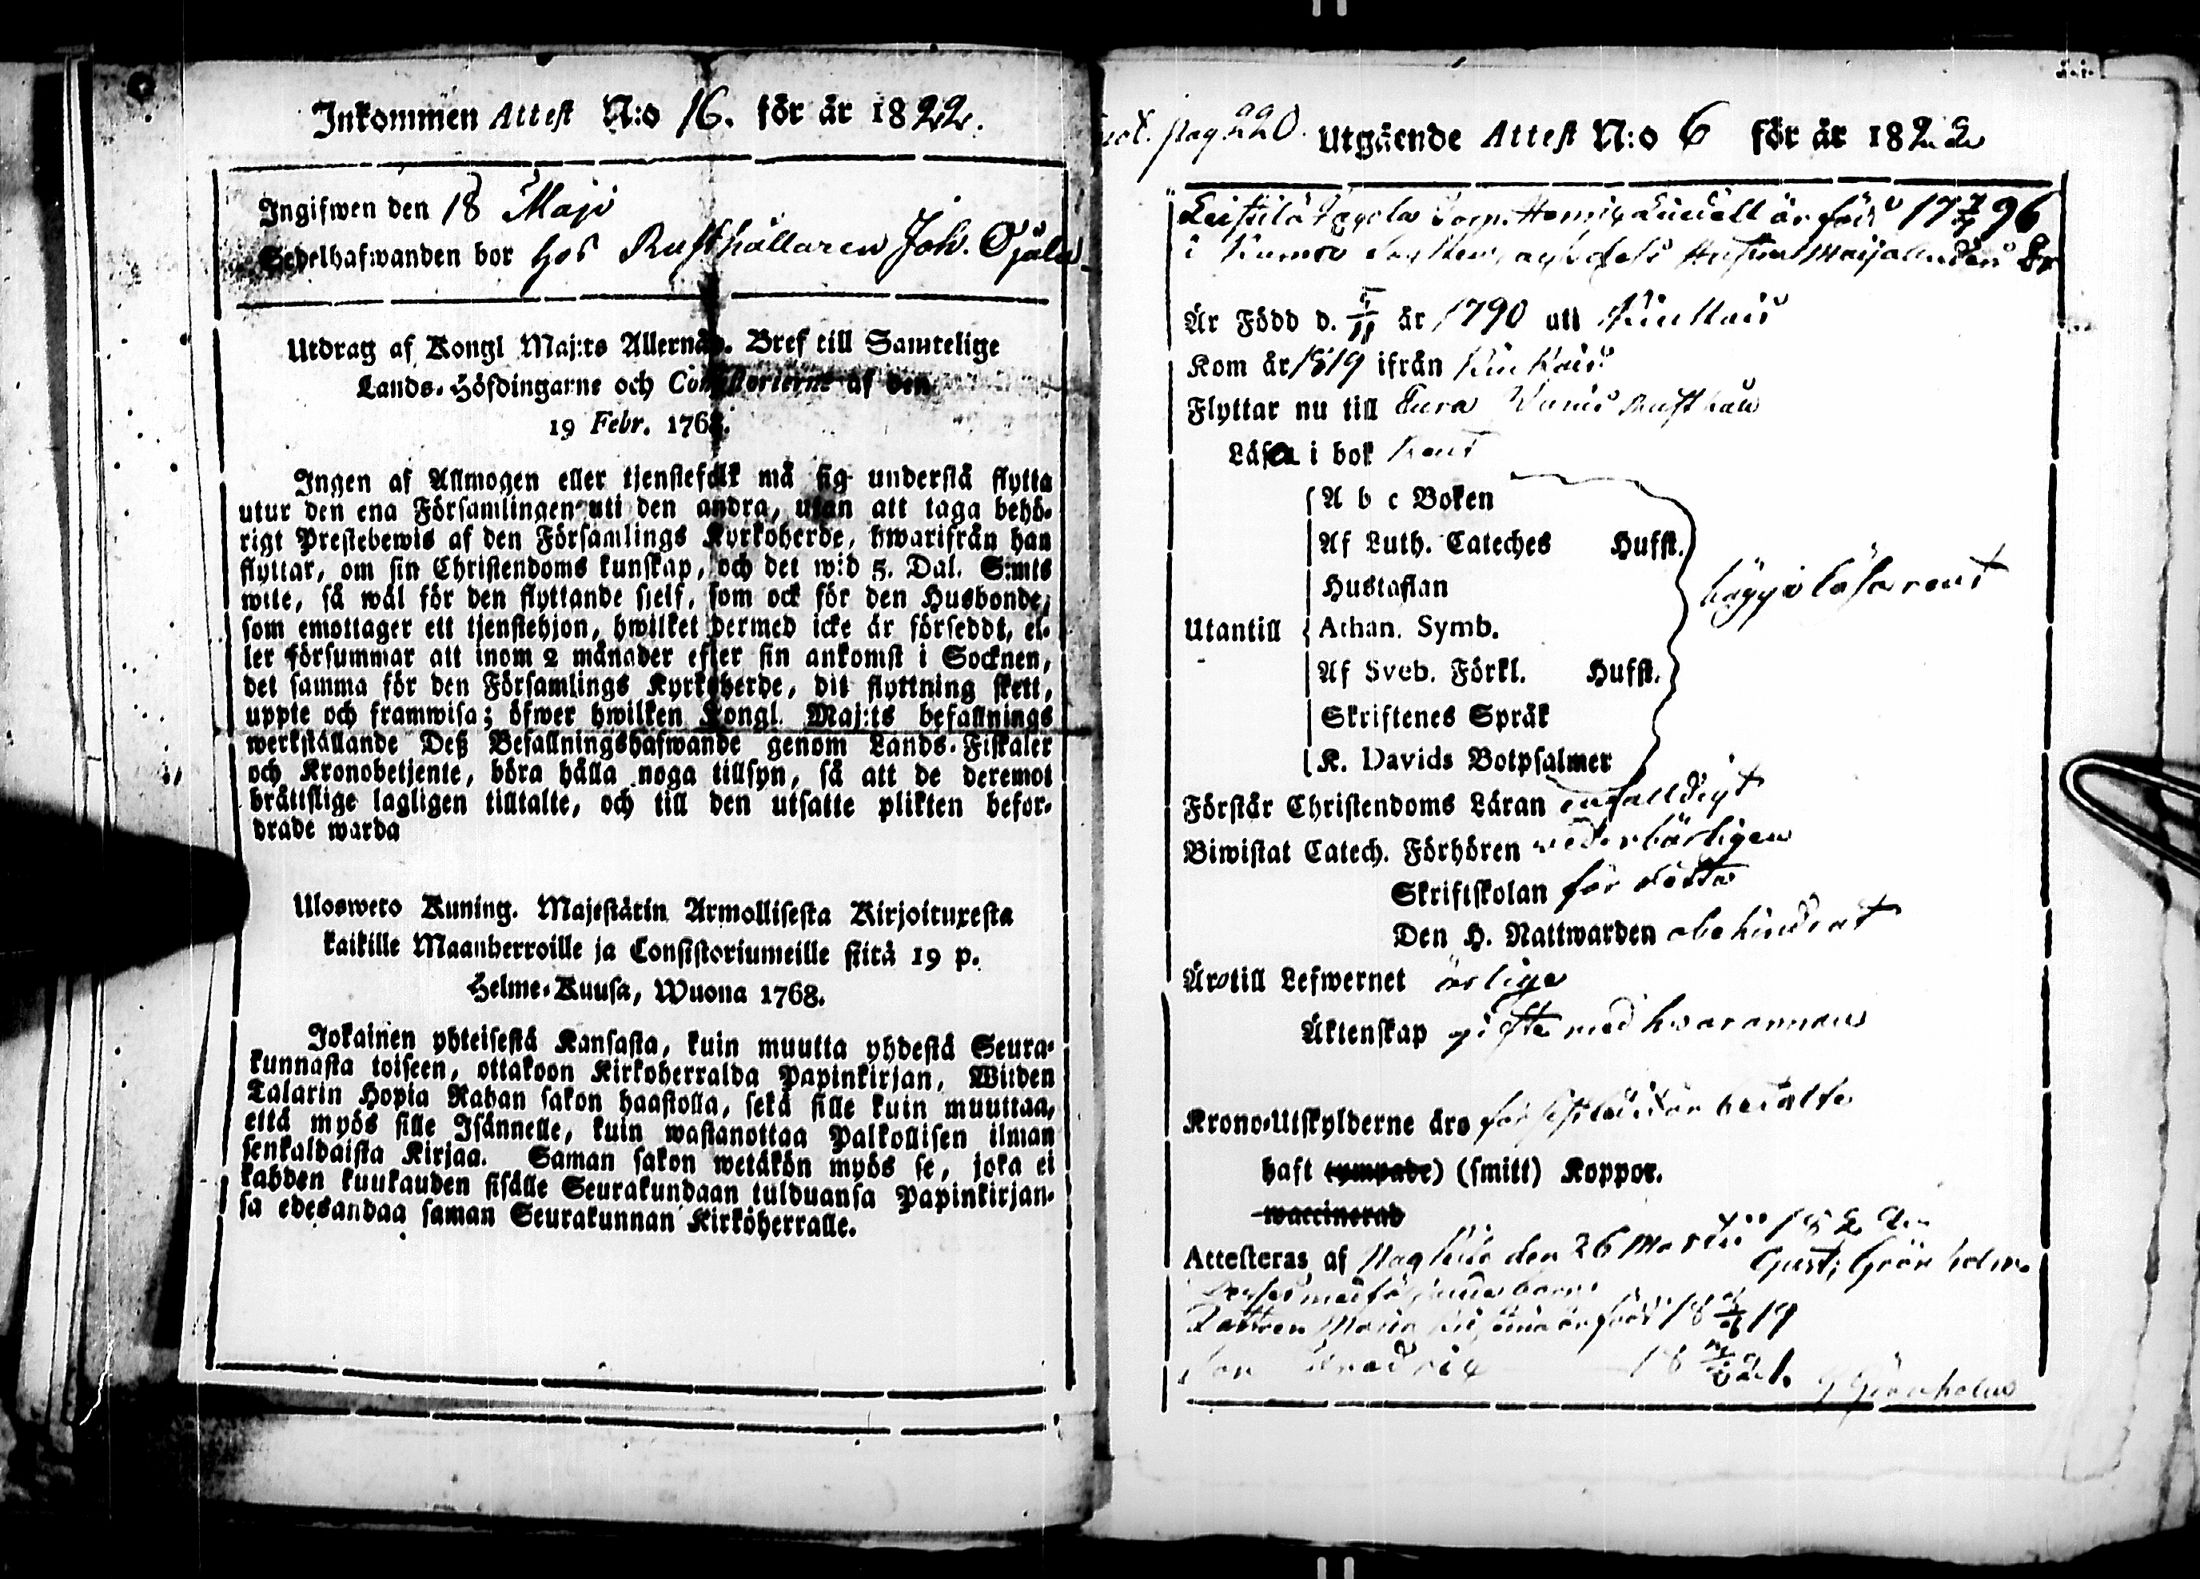 Inkommen Attest N:o 16. för år 1822.
Ingifwen den 18 Maji
Sedelhafwanden bor hos Rusthållaren Joh. Ojala
Utdrag af Kongl Maj:ts Allernåd. Bref till Samtelige
Lands-Höfdingarne och Consistorierne af den
19 Febr. 1768.
Ingen af Allmogen eller tjenstefolk må sig understå flytta
utur den ena Församlingen uti den andra, utan att taga behö-
rigt Prestebewis af den Församlings Kyrkoherde, hwarifrån han
flyttar, om sin Christendoms kunskap, och det wid 5. Dal. S:mts
wite, så wäl för den flyttande sjelf, som ock för den Husbonde,
som emottager ett tjenstehjon, hwilket dermed icke är försedt, el-
ler försummar att inom 2 månader efter sin ankomst i Socknen,
det samma för den Församlings Kyrkoherde, dit flyttning skett,
uppte och framwisa; öfwer hwilken Kongl. Maj:ts befallnings
werkställande Deß Befallningshafwande genom Lands-Fiskaler
och Kronobetjente, böra hålla noga tillsyn, så att de deremot
bråttslige lagligen tilltalte, och till den utsatte plikten befor-
drade warda
Ulosweto Kuning. Majestätin Armollisesta Kirjoituxesta
kaikille Maanherroille ja Consistoriumeille siitä 19 p.
Helme-Kuusa, Wuona 1768.
Jokainen yhteisestä Kansasta, kuin muutta yhdestä Seura-
kunnasta toiseen, ottakoon Kirkoherralda Papinkirjan, Wiiden
Talarin Hopia Rahan sakon haastolla, sekä sille kuin muuttaa,
että myös sille Isännelle, kuin wastanottaa Palkollisen ilman
senkaldaista Kirjaa. Saman sakon wetäkön myös se, joka ei
kahden kuukauden sisälle Seurakundaan tulduansa Papinkirjan-
sa edesandaa saman Seurakunnan Kirköherralle.
pag 220. Utgående Attest N:o 6 för år 1822
är född 17 96
i Kumo
Är Född d. 5/11 år 1790 uti Kiukais
Kom år 1819 ifrån Kiukais
Flyttar nu till Eura
Läsa i bok rent
A b c Boken
Af Luth. Cateches Hufst.
Hustaflan
Utantill Athan. Symb.
Af Sveb. Förkl. Hufst.
Skriftenes Språk
K. Davids Botpsalmer
bägge läsa rent
Förstår Christendoms Läran enfalldigt
Biwistat Catech. Förhören wederbörligen
Skriftskolan för detta
Den H. Nattwarden obehindrat
Äro till Lefwernet ärlige
Äktenskap gifte med hvarannan
Krono-Utskylderne äro betalte
haft (ympade) (smitt) Koppor.
waccinerad
Attesteras af den 26 Martii 1822
Gust: Grönholm
Dottren Maria är född 18 19
Son 18 21.
G Grönholm